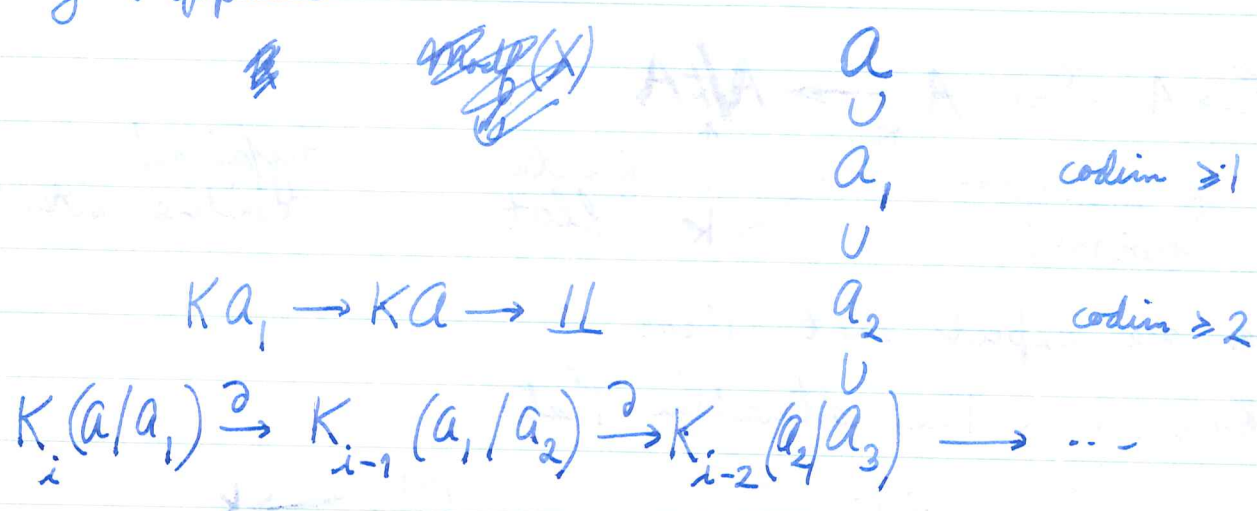 (X) a
∪
a₁ codim ≥ 1
∪
Ka₁ → Ka → ⊥⊥ a₂ codim ≥ 2
∪
K_i(a/a₁) —∂→ K_{i-1}(a₁/a₂) —∂→ K_{i-2}(a₂/a₃) → ...